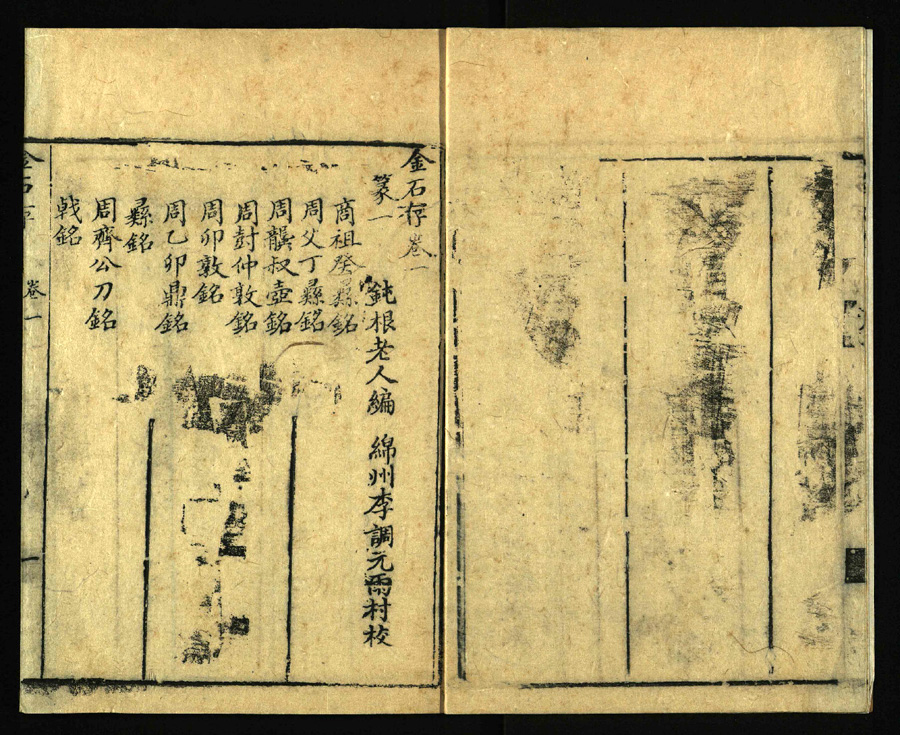 金石存卷一
篆一
鈍根老人編 綿州李調元雨村校
商祖癸彝銘
周父丁彝銘
周龔叔壺銘
周封仲敦銘
周卯敦銘
周乙卯鼎銘
彝銘
周齊公刀銘
戟銘
金石存 卷一 一